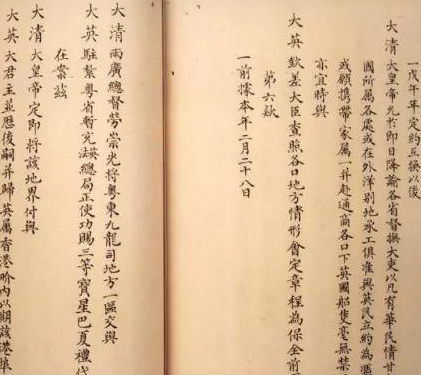 一戊午年定約互換以後
大清大皇帝允於即日降諭各省督撫大吏以凡有華民情甘
國所屬各處或在外洋別地承工俱准與英民立約為憑
或願攜帶家屬一并赴通商各口下英國船隻毫無禁
亦宜時與
大英欽差大臣查照各口地方情形會定章程為保全前
第六款
一前據本年二月二十八日
大清兩廣總督勞崇光將粵東九龍司地方一區交與
大英駐紮粵省暫充英法總局正使功賜三等寶星巴夏禮代
在案茲
大清大皇帝定即將該地界付與
大英大君主並歷後嗣并歸英屬香港畍內以期該港埠